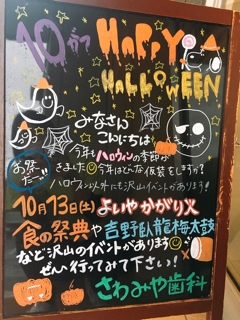 10月 HAPPY
HALLOWEEN
みなさん
こんにちは
今年もハロウィンの季節が
きました 今年はどんな仮装をしますか?
お祭だー!!
ハロウィン以外にも沢山イベントがあります!
10月13日(土)よいやかがり火
食の祭典や吉野臥龍梅太鼓
など沢山のイベントがあります
ぜひ行ってみて下さい!
さわみや歯科